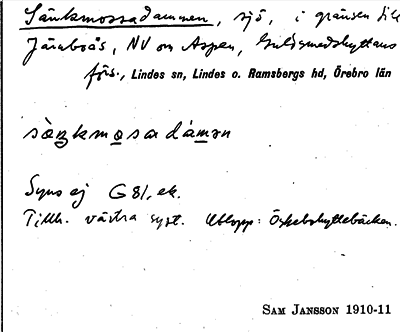 Sänkmossadammen, sjö, i gränsen till
Järnboås, NV om Aspen, Guldsmedshyttans
förs., Lindes sn, Lindes o. Ramsbergs hd, Örebro län
Syns ej G 81, ek.
Tillh. västra syst. Utlopp: Öskebohyttebäcken.
SAM JANSSON 1910-11